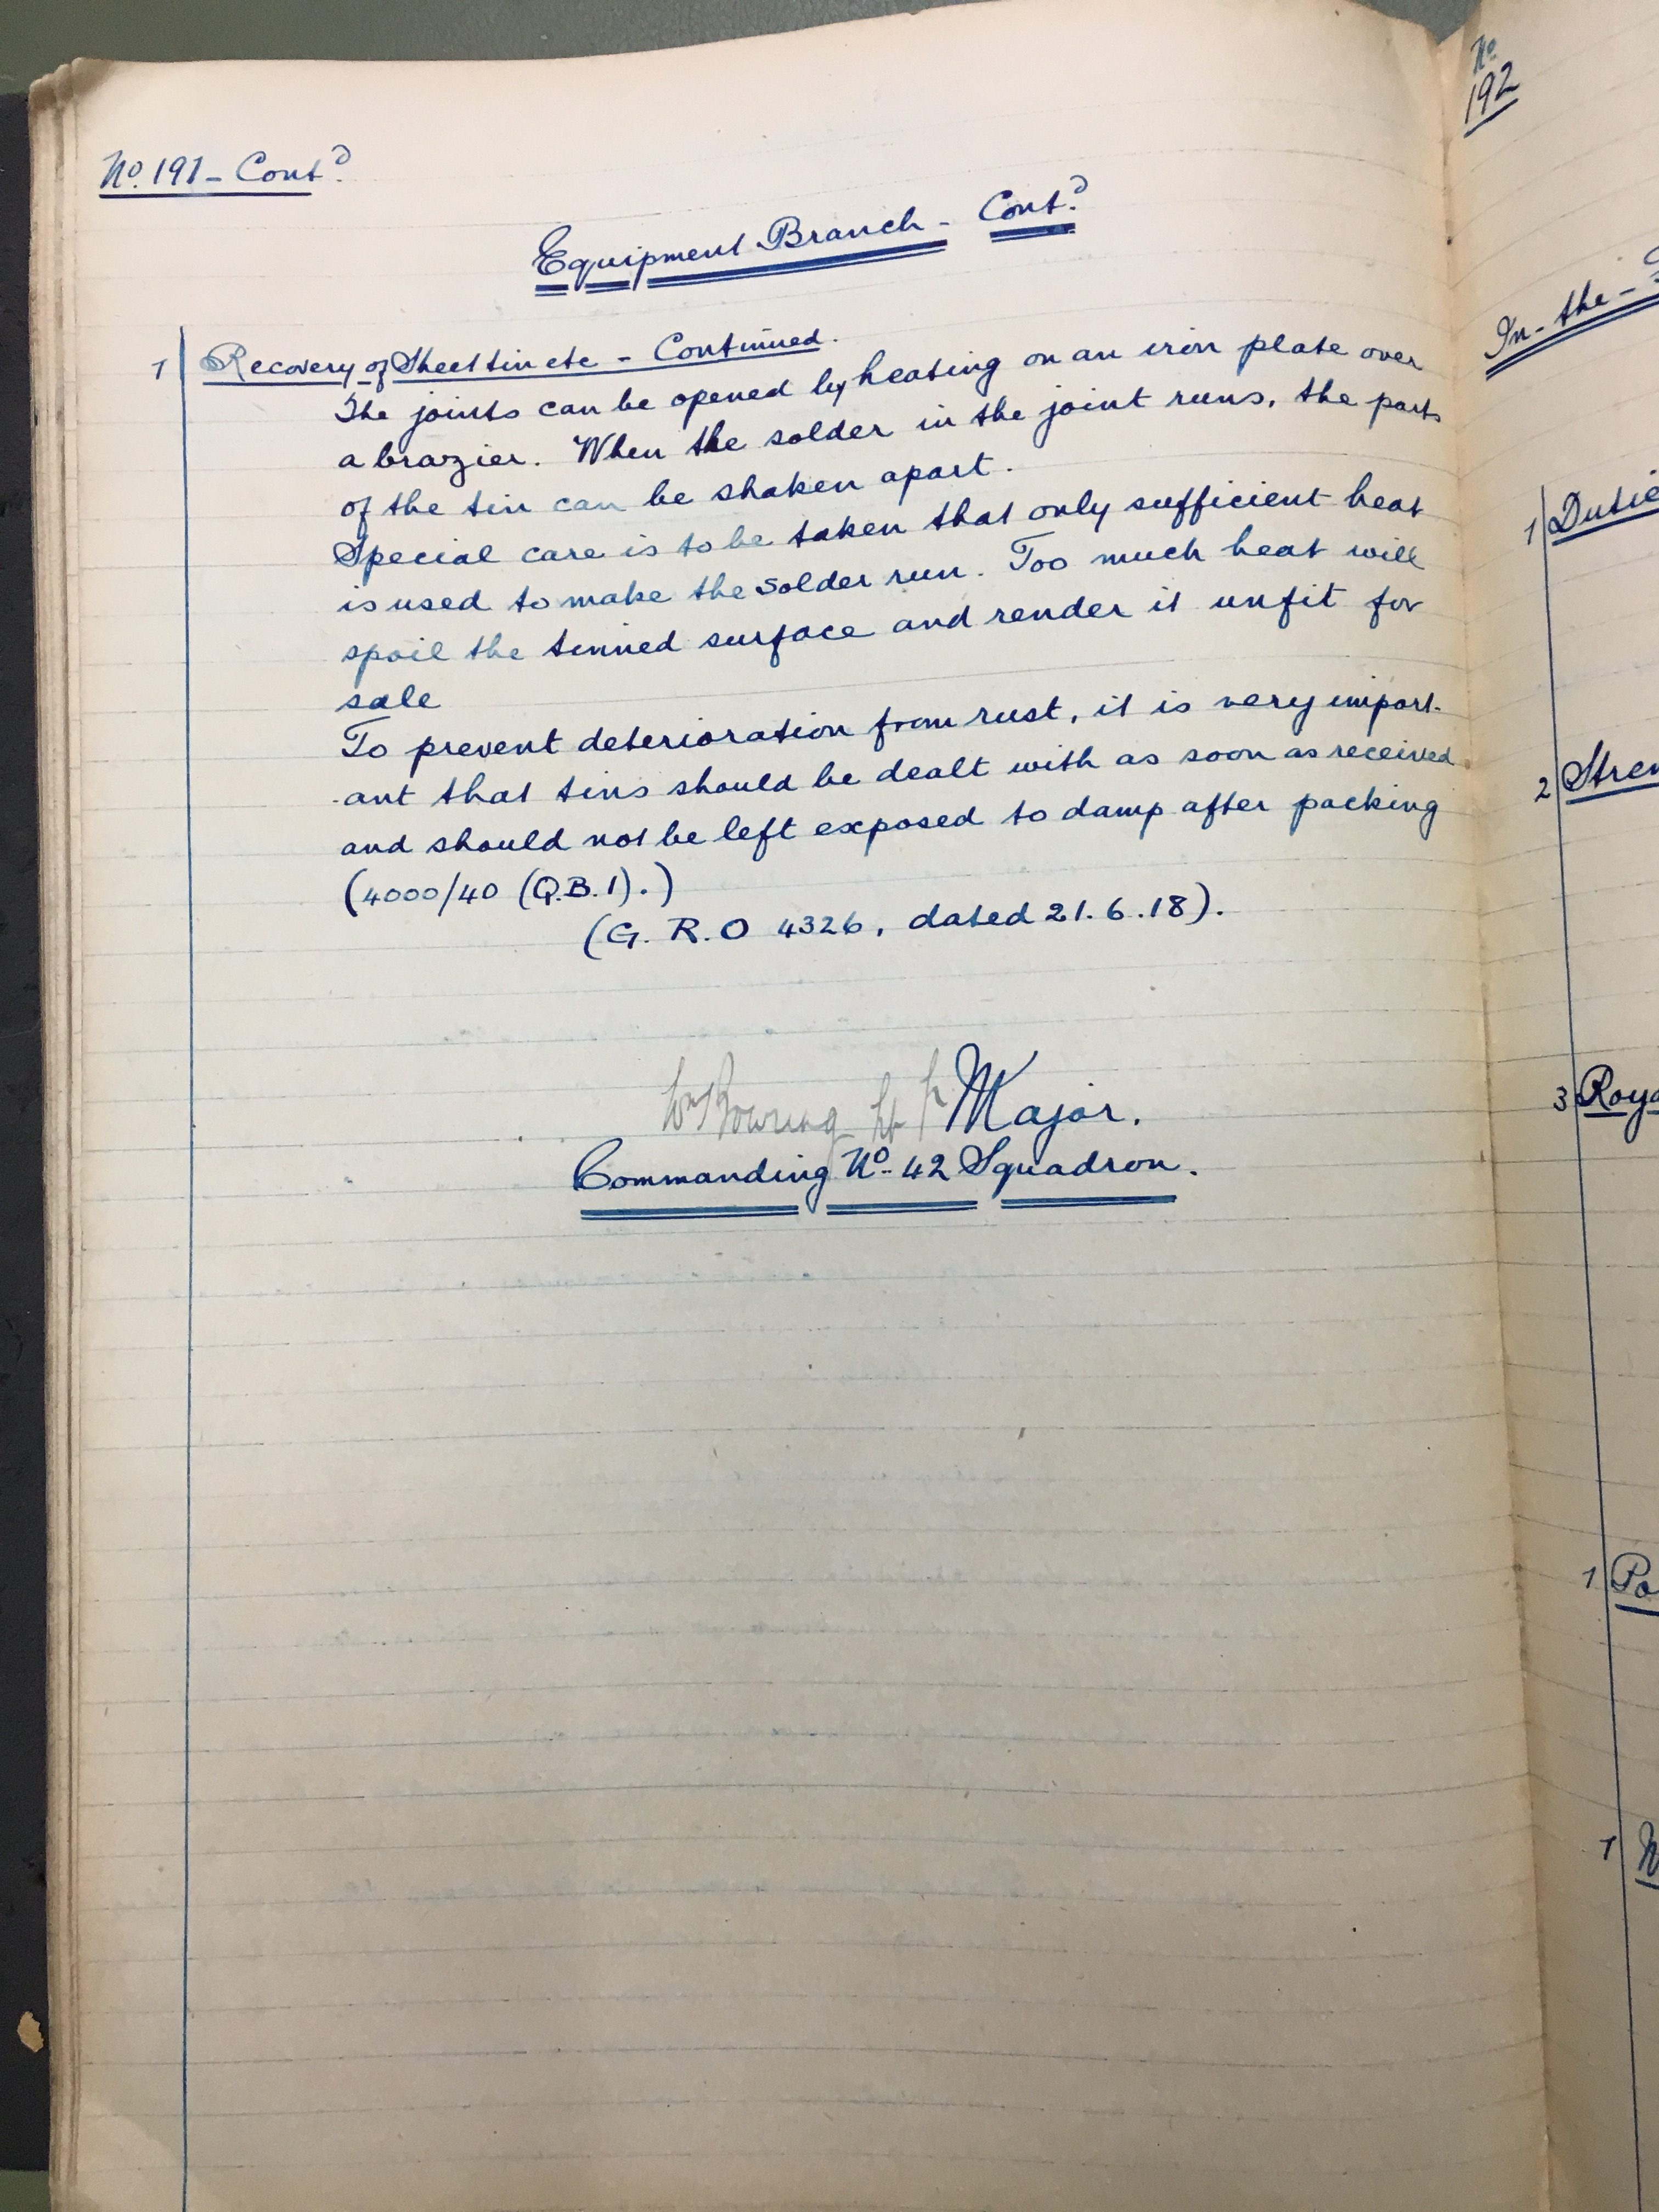 No. 191 - Contd.
Equipment Branch - Contd.
1 Recovery of Sheet tin etc - Continued.
The joints can be opened by heating on an iron plate over
a brazier. When the solder in the joint runs, the parts
of the tin can be shaken apart.
Special care is to be taken that only sufficient heat
is used to make the solder run. Too much heat will
spoil the tinned surface and render it unfit for
sale
To prevent deterioration from rust, it is very import-
-ant that tins should be dealt with as soon as received
and should not be left exposed to damp after packing
(4000/40 (Q.B.1).)
(G. R. O 4326, dated 21.6.18).
Wm Bowring Lt f Major.
Commanding No. 42 Squadron.
No
192
In-the-
1 Dutie
2 Stren
3 Roya
1 Po
1